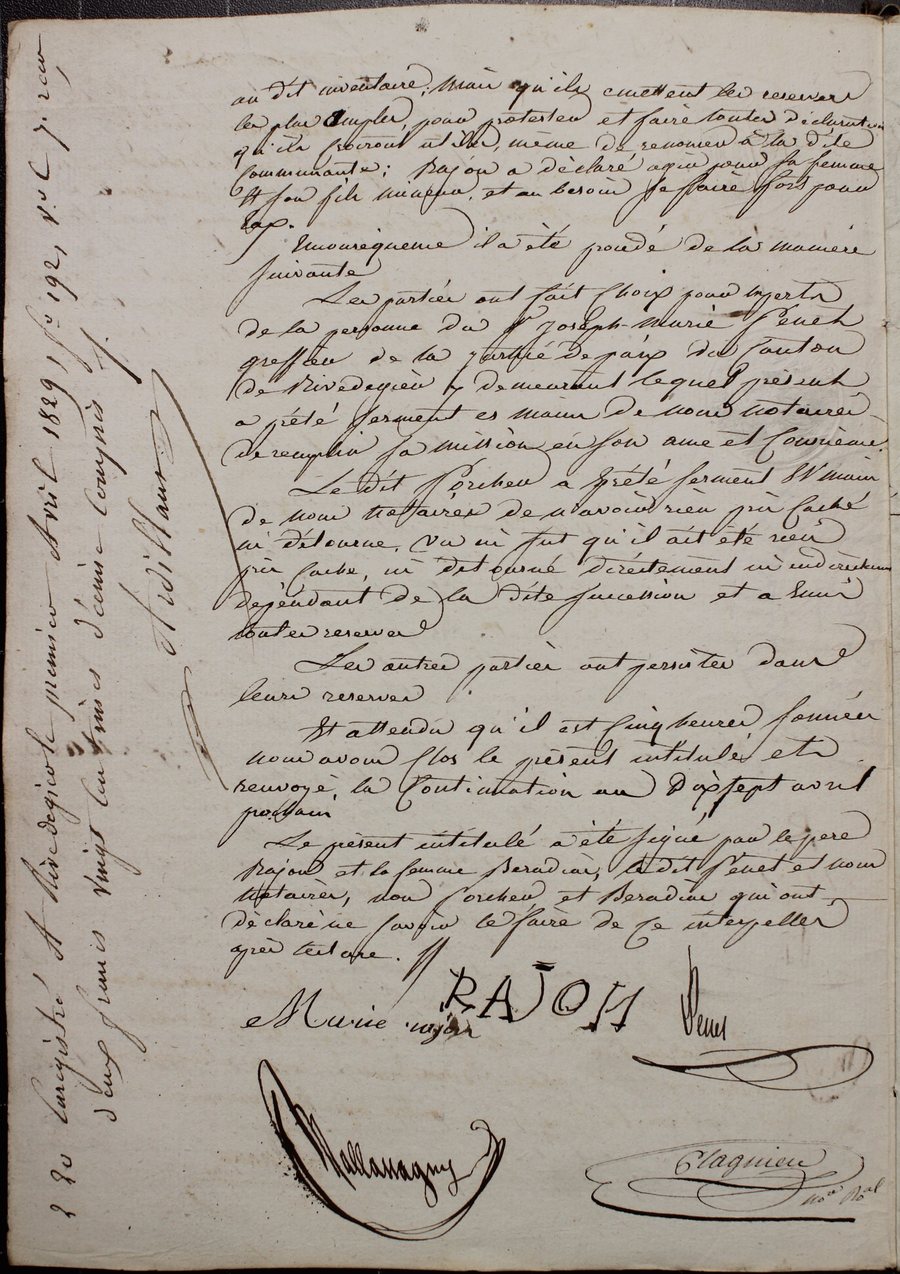 au dit inventaire; Mais qu'ils emettent les reserves
les plus amples, pour protester et faire toutes déclarations
qu'ils croiront utiles, même de renoncer à la dite
Communauté; Rajon a déclaré agir pour sa femme
et son fils mineur, et au besoin se faire fort pour
Eux.
En conséquence il a été procédé de la manière
suivante
Les parties ont fait choix pour experts
de la personne du Sr Joseph-Marie Penet
greffier de la justice de paix du Canton
de Rivedegier y demeurant lequel présent
a prêté serment es mains de nous notaires
de remplir sa mission en son ame et Conscience
Le dit a prêté serment es mains
de nous Notaires de n'avoir rien pris caché
ni détourné, vu ni sut qu'il ait été rien
pris caché, ni detourné directement ni indirectement
dépendant de la dite succession et a
toutes reserves
Les autres parties ont persister dans
leurs reserves
Et attendu qu'il est Cinq heures sonnées
nous avons Clos le présent intitulé et
renvoyé la Continuation au Dixsept avril
prochain
Le présent intitulé a été signé par le pere
Rajon et la femme Beradier, le dit Penet et nous
Notaires, non et Beradier qui ont
déclaré ne savoir le faire de ce interpellés
après lecture.
Marie rajon
RAJON
Penet
Mallassagny
Plagnieu
Nore Roal
Enregistré A Rivedegier le premier Avril 1829, fo 192, vo C 7. reçu
deux francs vingt centimes dixième compris